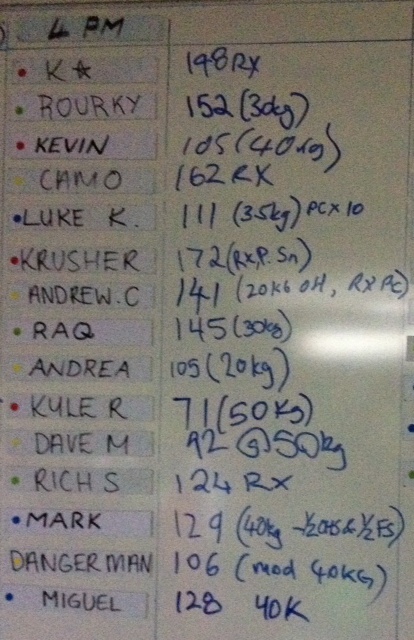 4 PM
K☆ 198 RX
ROURKY 152 (30kg)
KEVIN 105 (40kg)
CAMO 162 RX
LUKE K. 111 (35kg) PC X 10
KRUSHER 172 (RX P. Sn)
ANDREW.C 141 (20KG OH, RX PC)
RAQ 145 (30kg)
ANDREA 105 (20kg)
KYLE R 71 (50kg)
DAVE M 92 @ 50kg
RICH S 124 RX
MARK 129 (40kg - ½ OHS & ½ FS)
DANGERMAN 106 (mod 40KG)
MIGUEL 128 40K